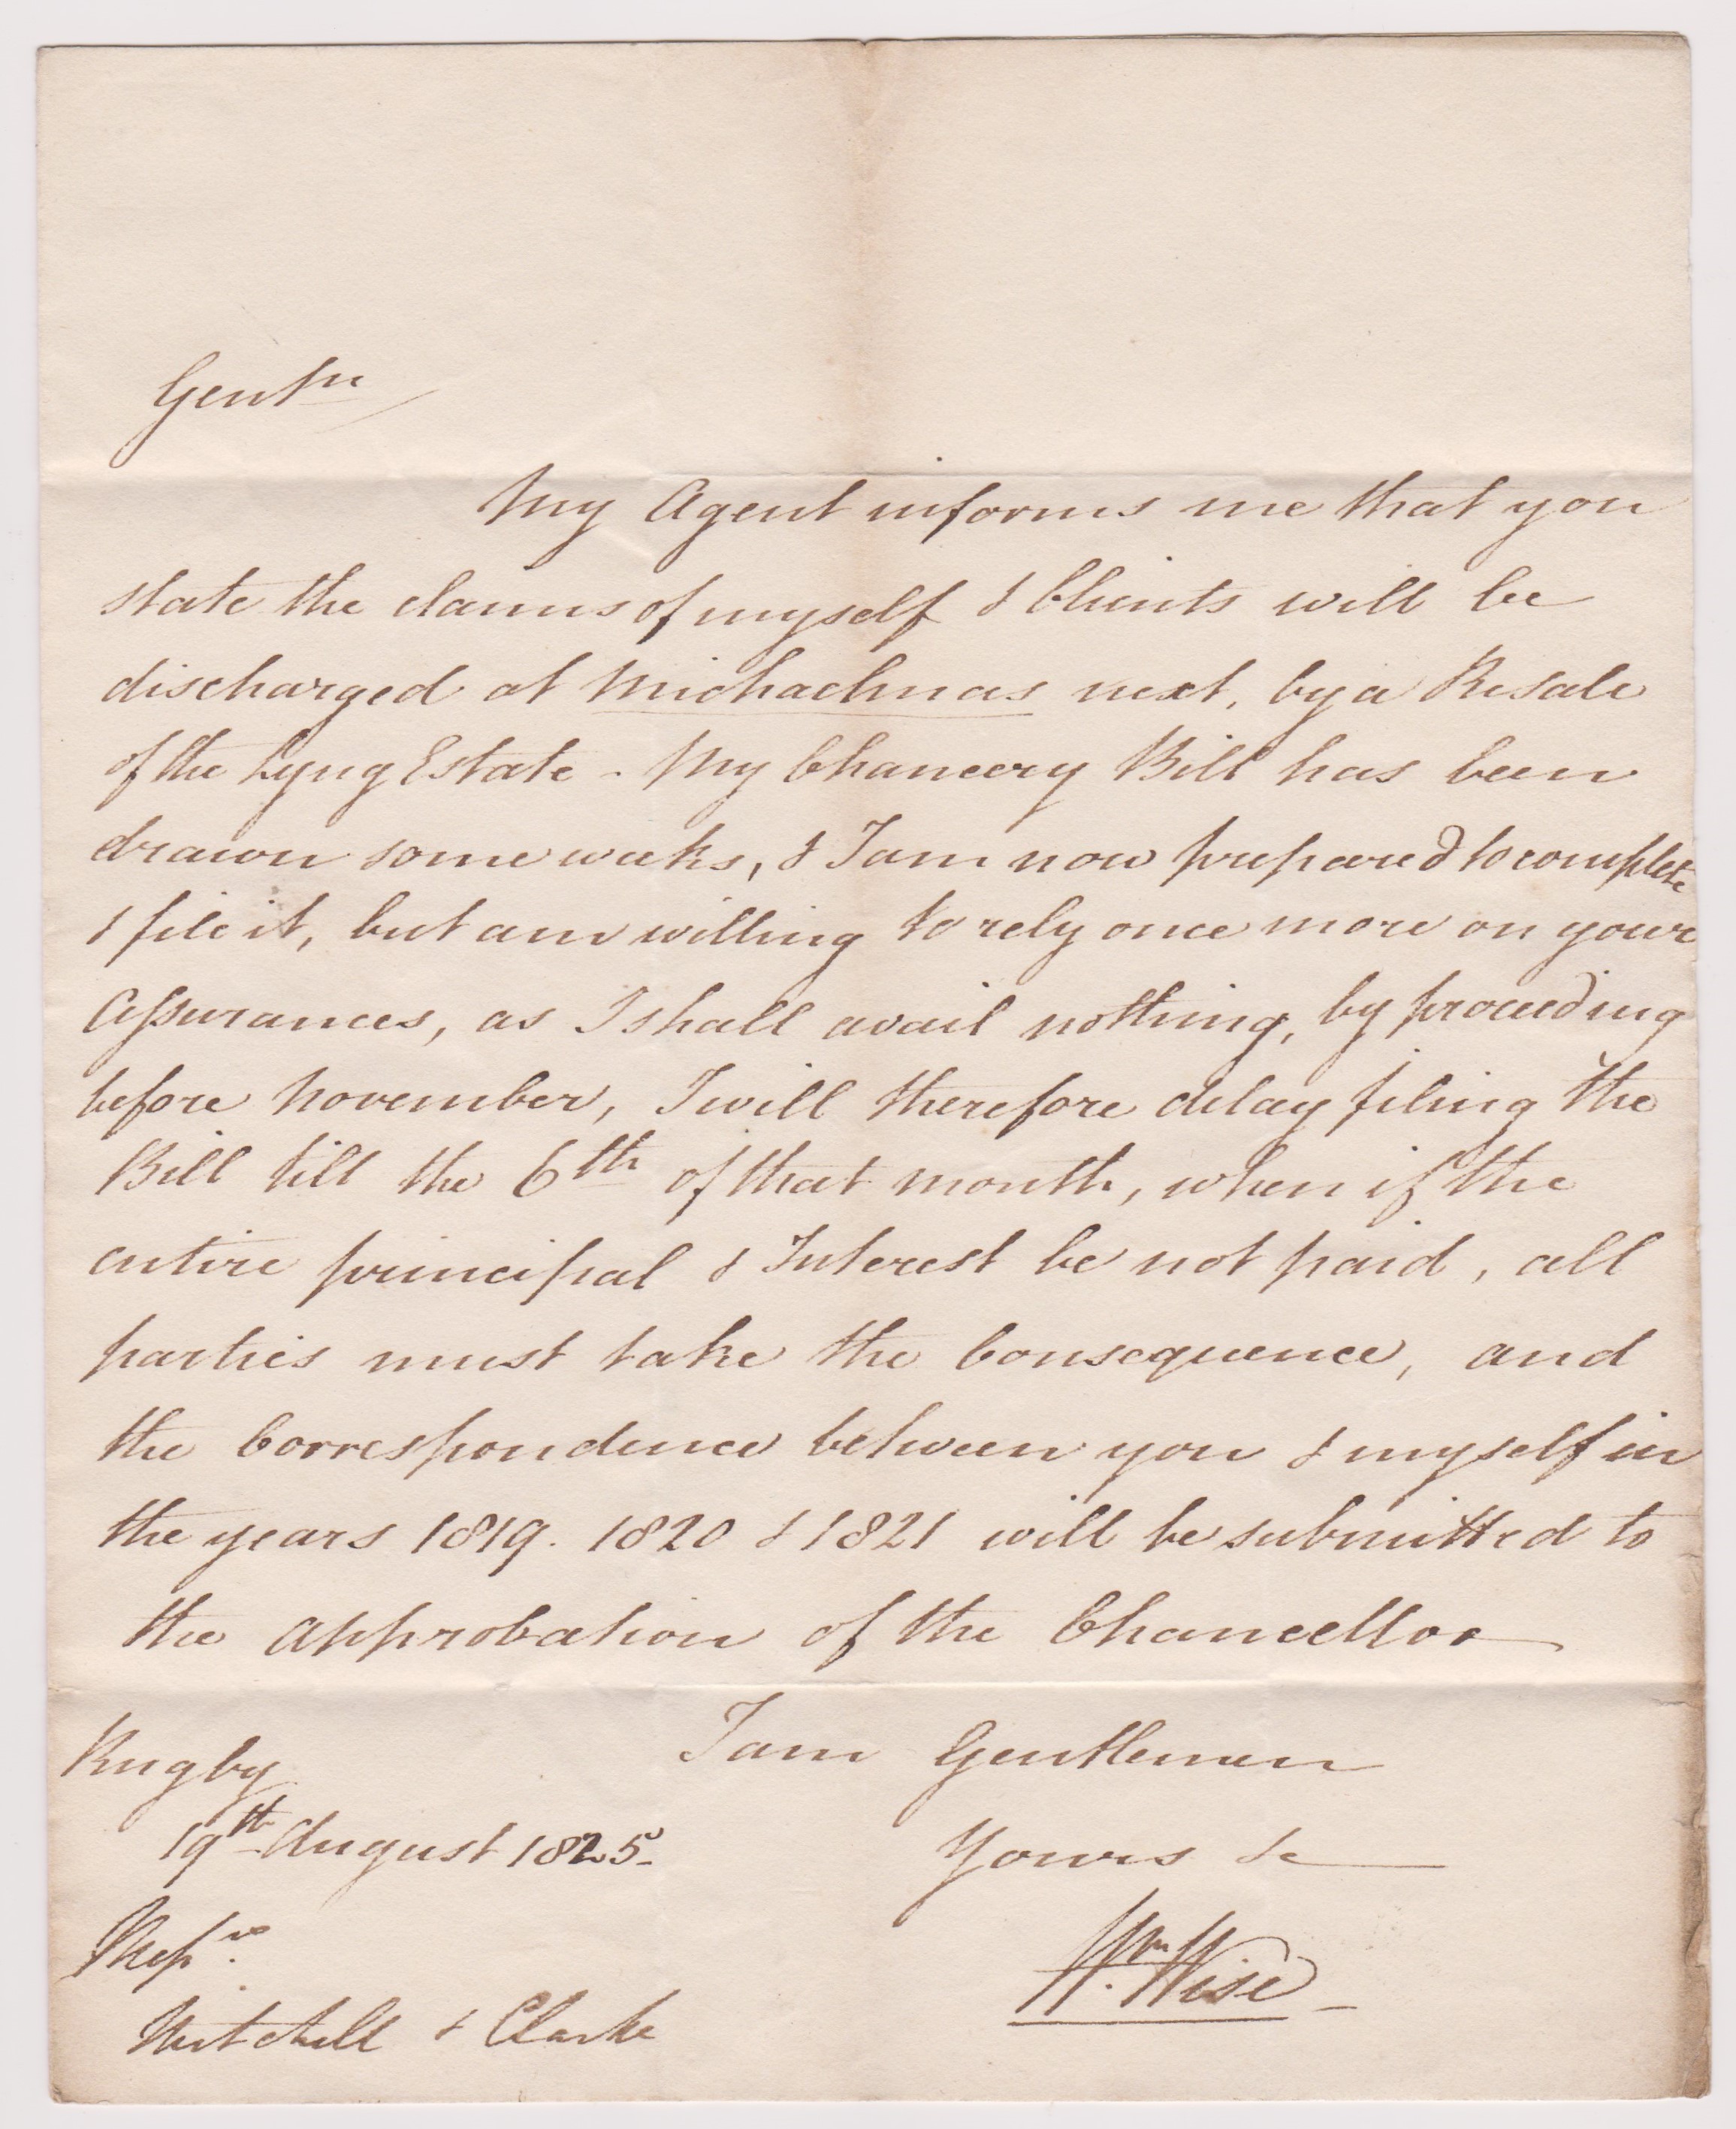 Gentn
My Agent informs me that you
state the claims of myself & Clients will be
discharged at Michaelmas next, by a Resale
of the Lyng Estate - My Chancery Bill has been
drawn some weeks, & I am now prepared to complete
& file it, but am willing to rely once more on your
Assurances, as I shall avail nothing, by proceeding
before November, I will therefore delay filing the
Bill till the 6th of that month, when if the
entire principal & Interest be not paid, all
parties must take the Consequence, and
the Correspondence between you & myself in
the years 1819. 1820 & 1821 will be submitted to
the approbation of the Chancellor
I am Gentlemen
Rugby
19th August 1825-
Yours &c
Messrs.
Wm. Wise -
Mitchell & Clarke